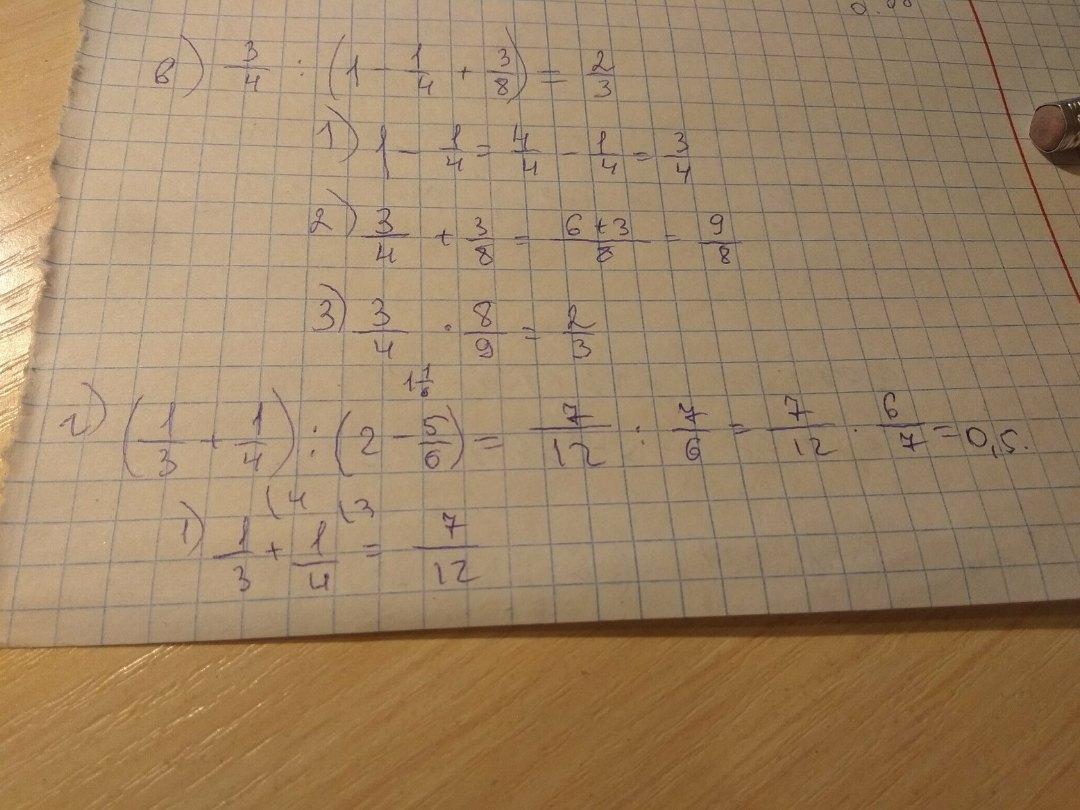 в) 3/4 : (1 - 1/4 + 3/8) = 2/3
1) 1 - 1/4 = 4/4 - 1/4 = 3/4
2) 3/4 + 3/8 = 6+3/8 = 9/8
3) 3/4 · 8/9 = 2/3
1 1/6
г) (1/3 + 1/4) : (2 - 5/6) = 7/12 : 7/6 = 7/12 · 6/7 = 0,5.
(4 (3
1) 1/3 + 1/4 = 7/12